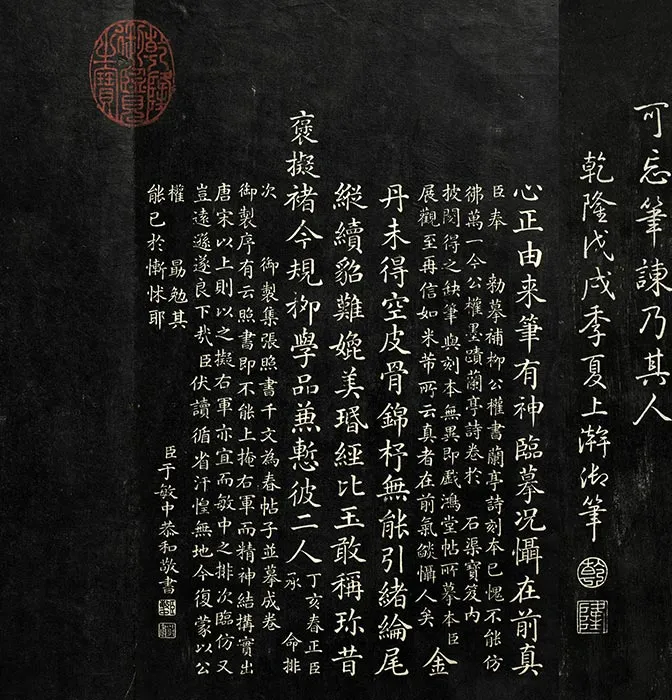 可忘筆諫乃其人
乾隆戊戌季夏上澣御筆
乾
隆
心正由来筆有神臨摹況懾在前真
臣奉 勅摹補柳公權書蘭亭詩刻本已愧不能仿
彿萬一今公權墨蹟蘭亭詩卷於 石渠寶笈内
披閱得之缺筆與刻本無異即戲鴻堂帖所摹本臣
展觀至再信如米芾所云真者在前氣燄懾人矣
金
丹未得空皮骨錦杼無能引緒綸尾
縱續貂難媲美瑉經比玉敢稱珎昔
褒擬褚今規柳學品兼慙彼二人
丁亥春正臣
承 命排
次 御製集張照書千文為春帖子並摹成卷
御製序有云照書即不能上掩右軍而精神結構實出
唐宋以上則以之擬右軍亦宜而敏中之排次臨仿又
豈遠遜遂良下哉臣伏讀循省汗惶無地今復蒙以公
權 勗勉其
能已於慚怵耶
臣于敏中恭和敬書
乾隆御覽之寶